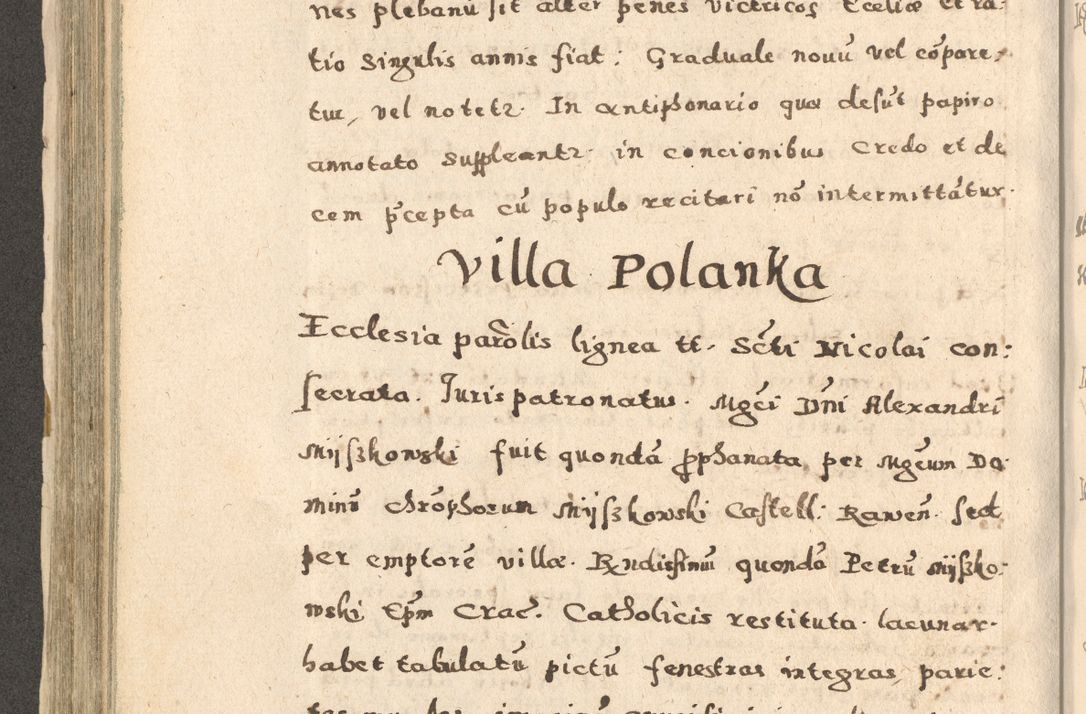 nes plebanū sit alter penes victricos Eccliæ et ra:
tio Singulis annis fiat: Graduale nouū vel cōpare,
tur, vel notetr. In antiphonario quæ desūt papiro
annotato suppleantr. in concionibus Credo et de
cem p̄cepta cū populo recitari nō intermittātur.
Villa Polanka
Ecclesia parōlis lignea tt. Scti Nicolai con:
secrata. Juris patronatus. Mgci Dni Alexandri
Mijszkowski fuit quondā pphanata per Mgcum Do
minū Chrōphorum Mijszkowski Castell: Rawen̄. sed
per emptorē villæ. Rndissimū quondā Petrū Mijszko:
wski Epm Crac. Catholicis restituta. lacunar.
habet tabulatū pictū fenestras integras, parie: